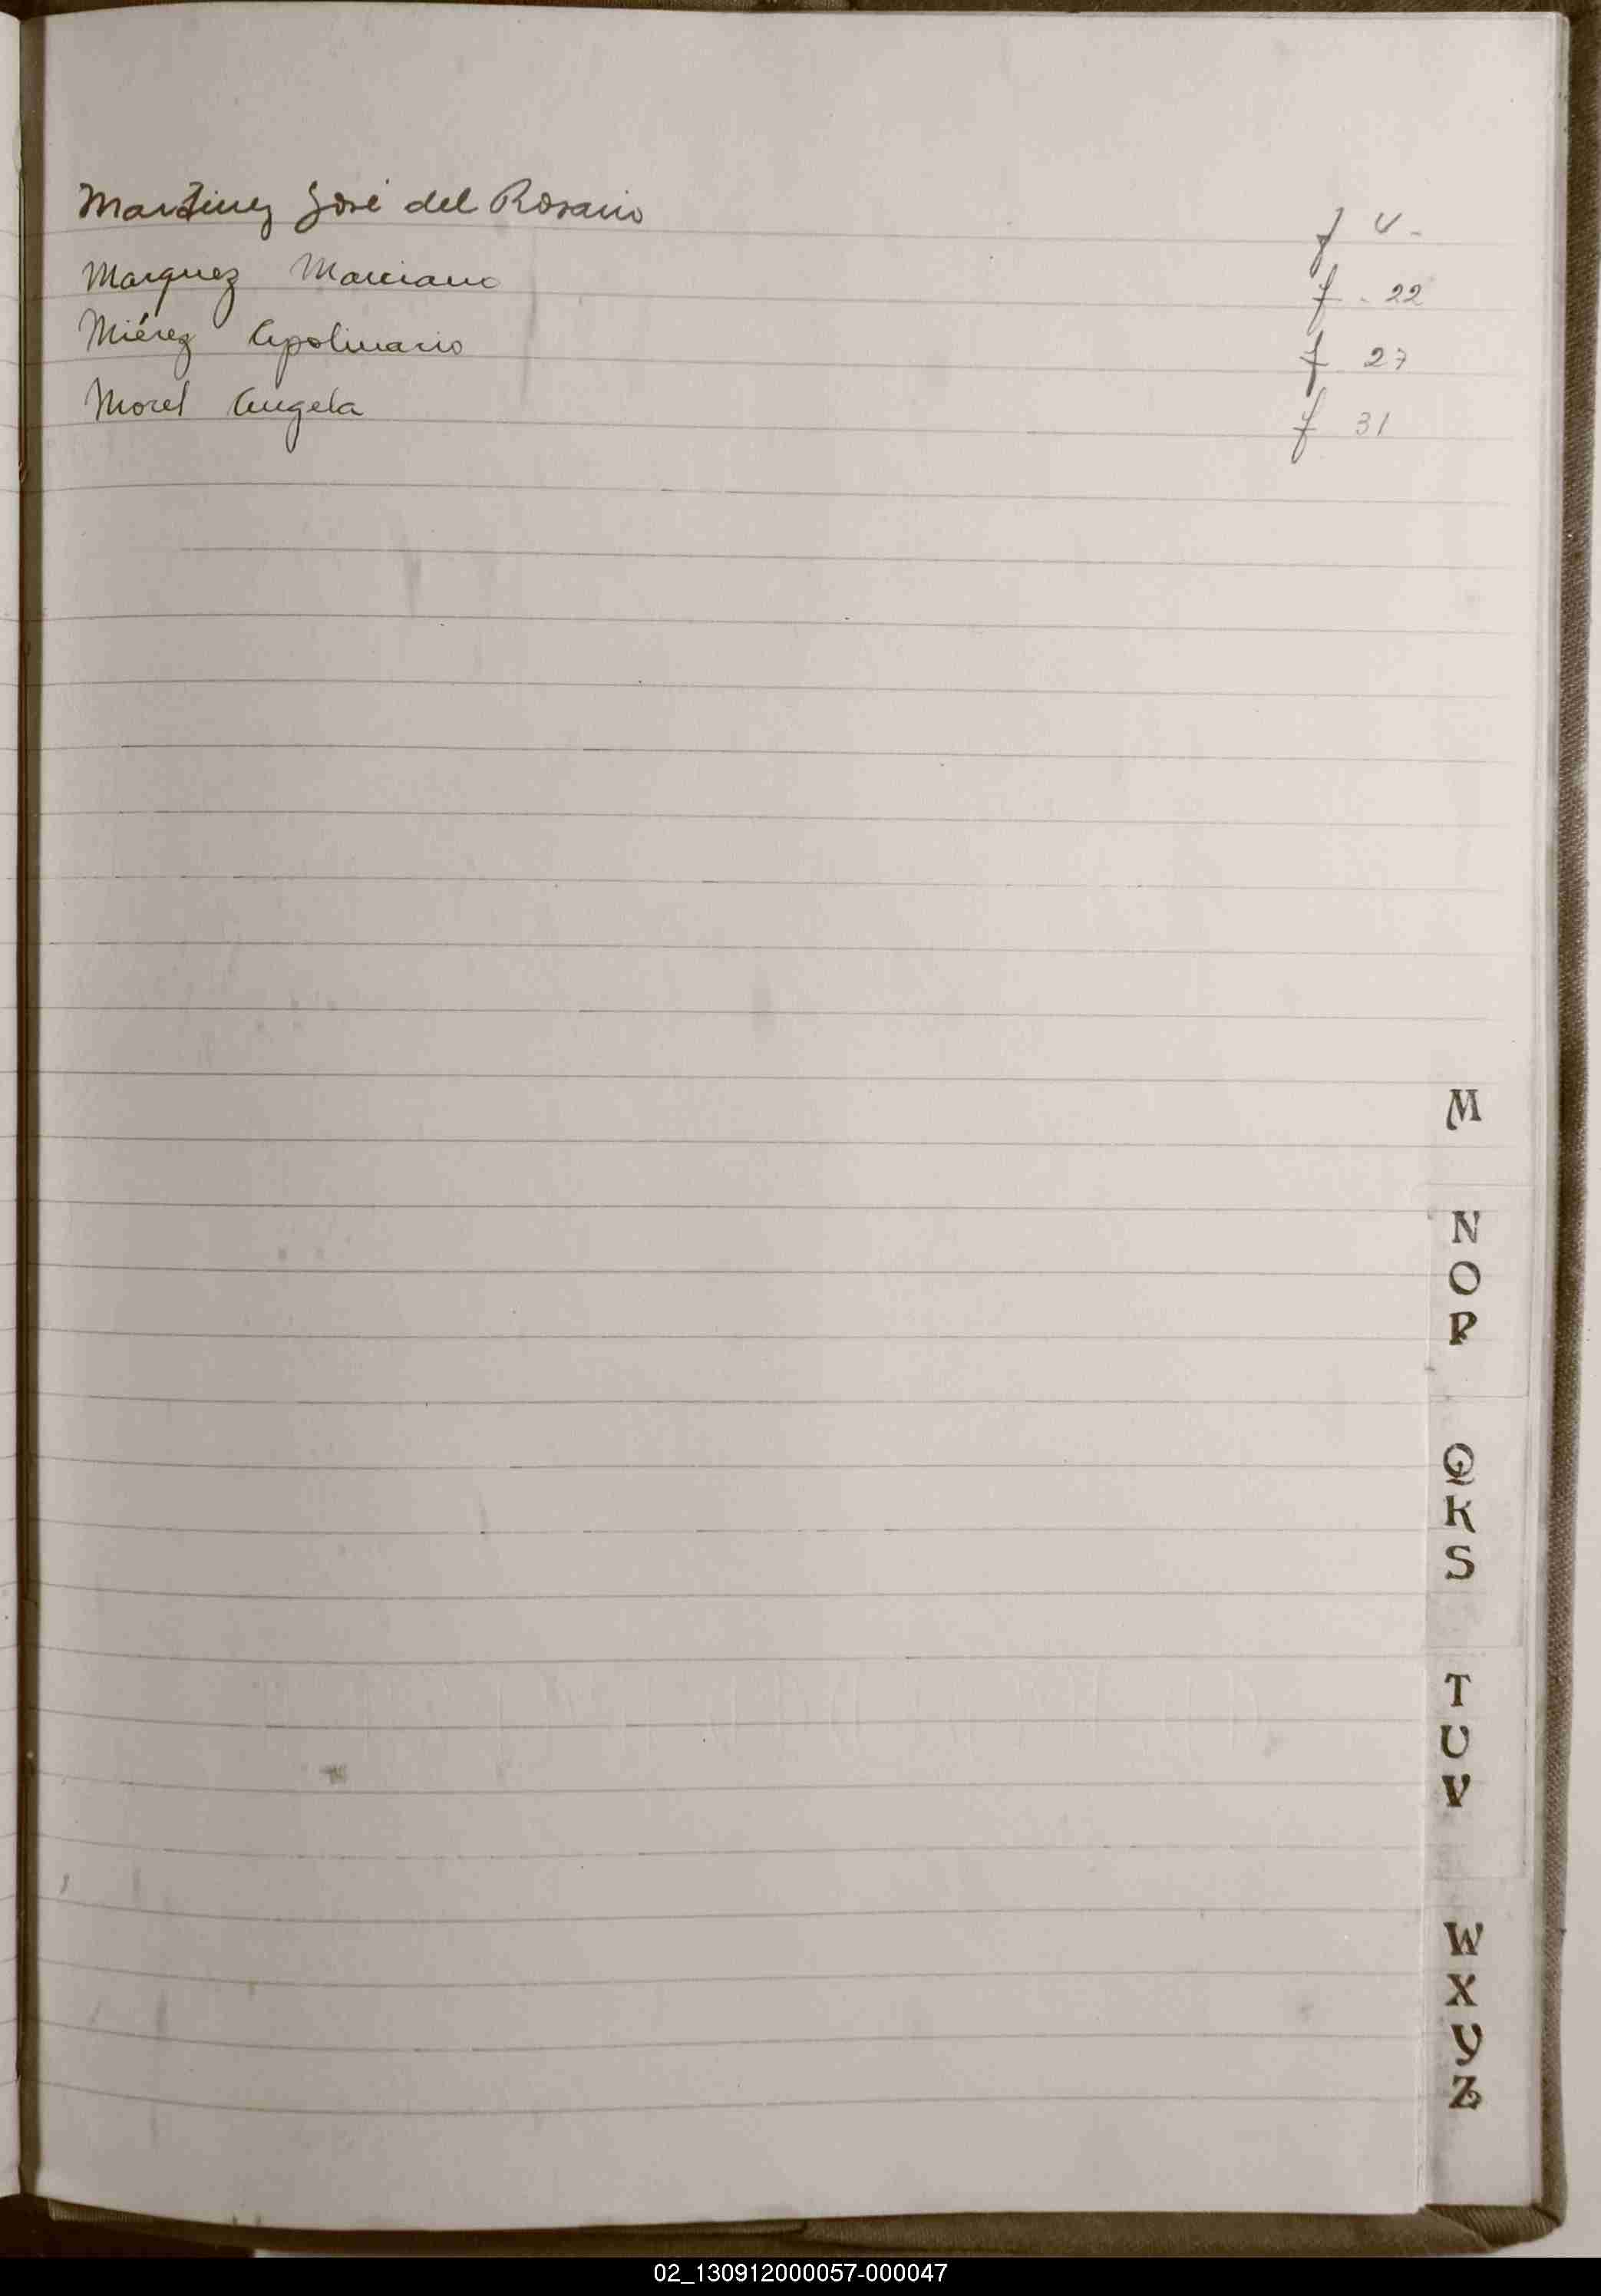 Martinez José del Rosario f
Marquez Marciano f. 22
Miérez Apolinario f 27
Morel Angela f 31
M
N
O
P
Q
R
S
T
U
V
W
X
Y
Z
02_130912000057-000047